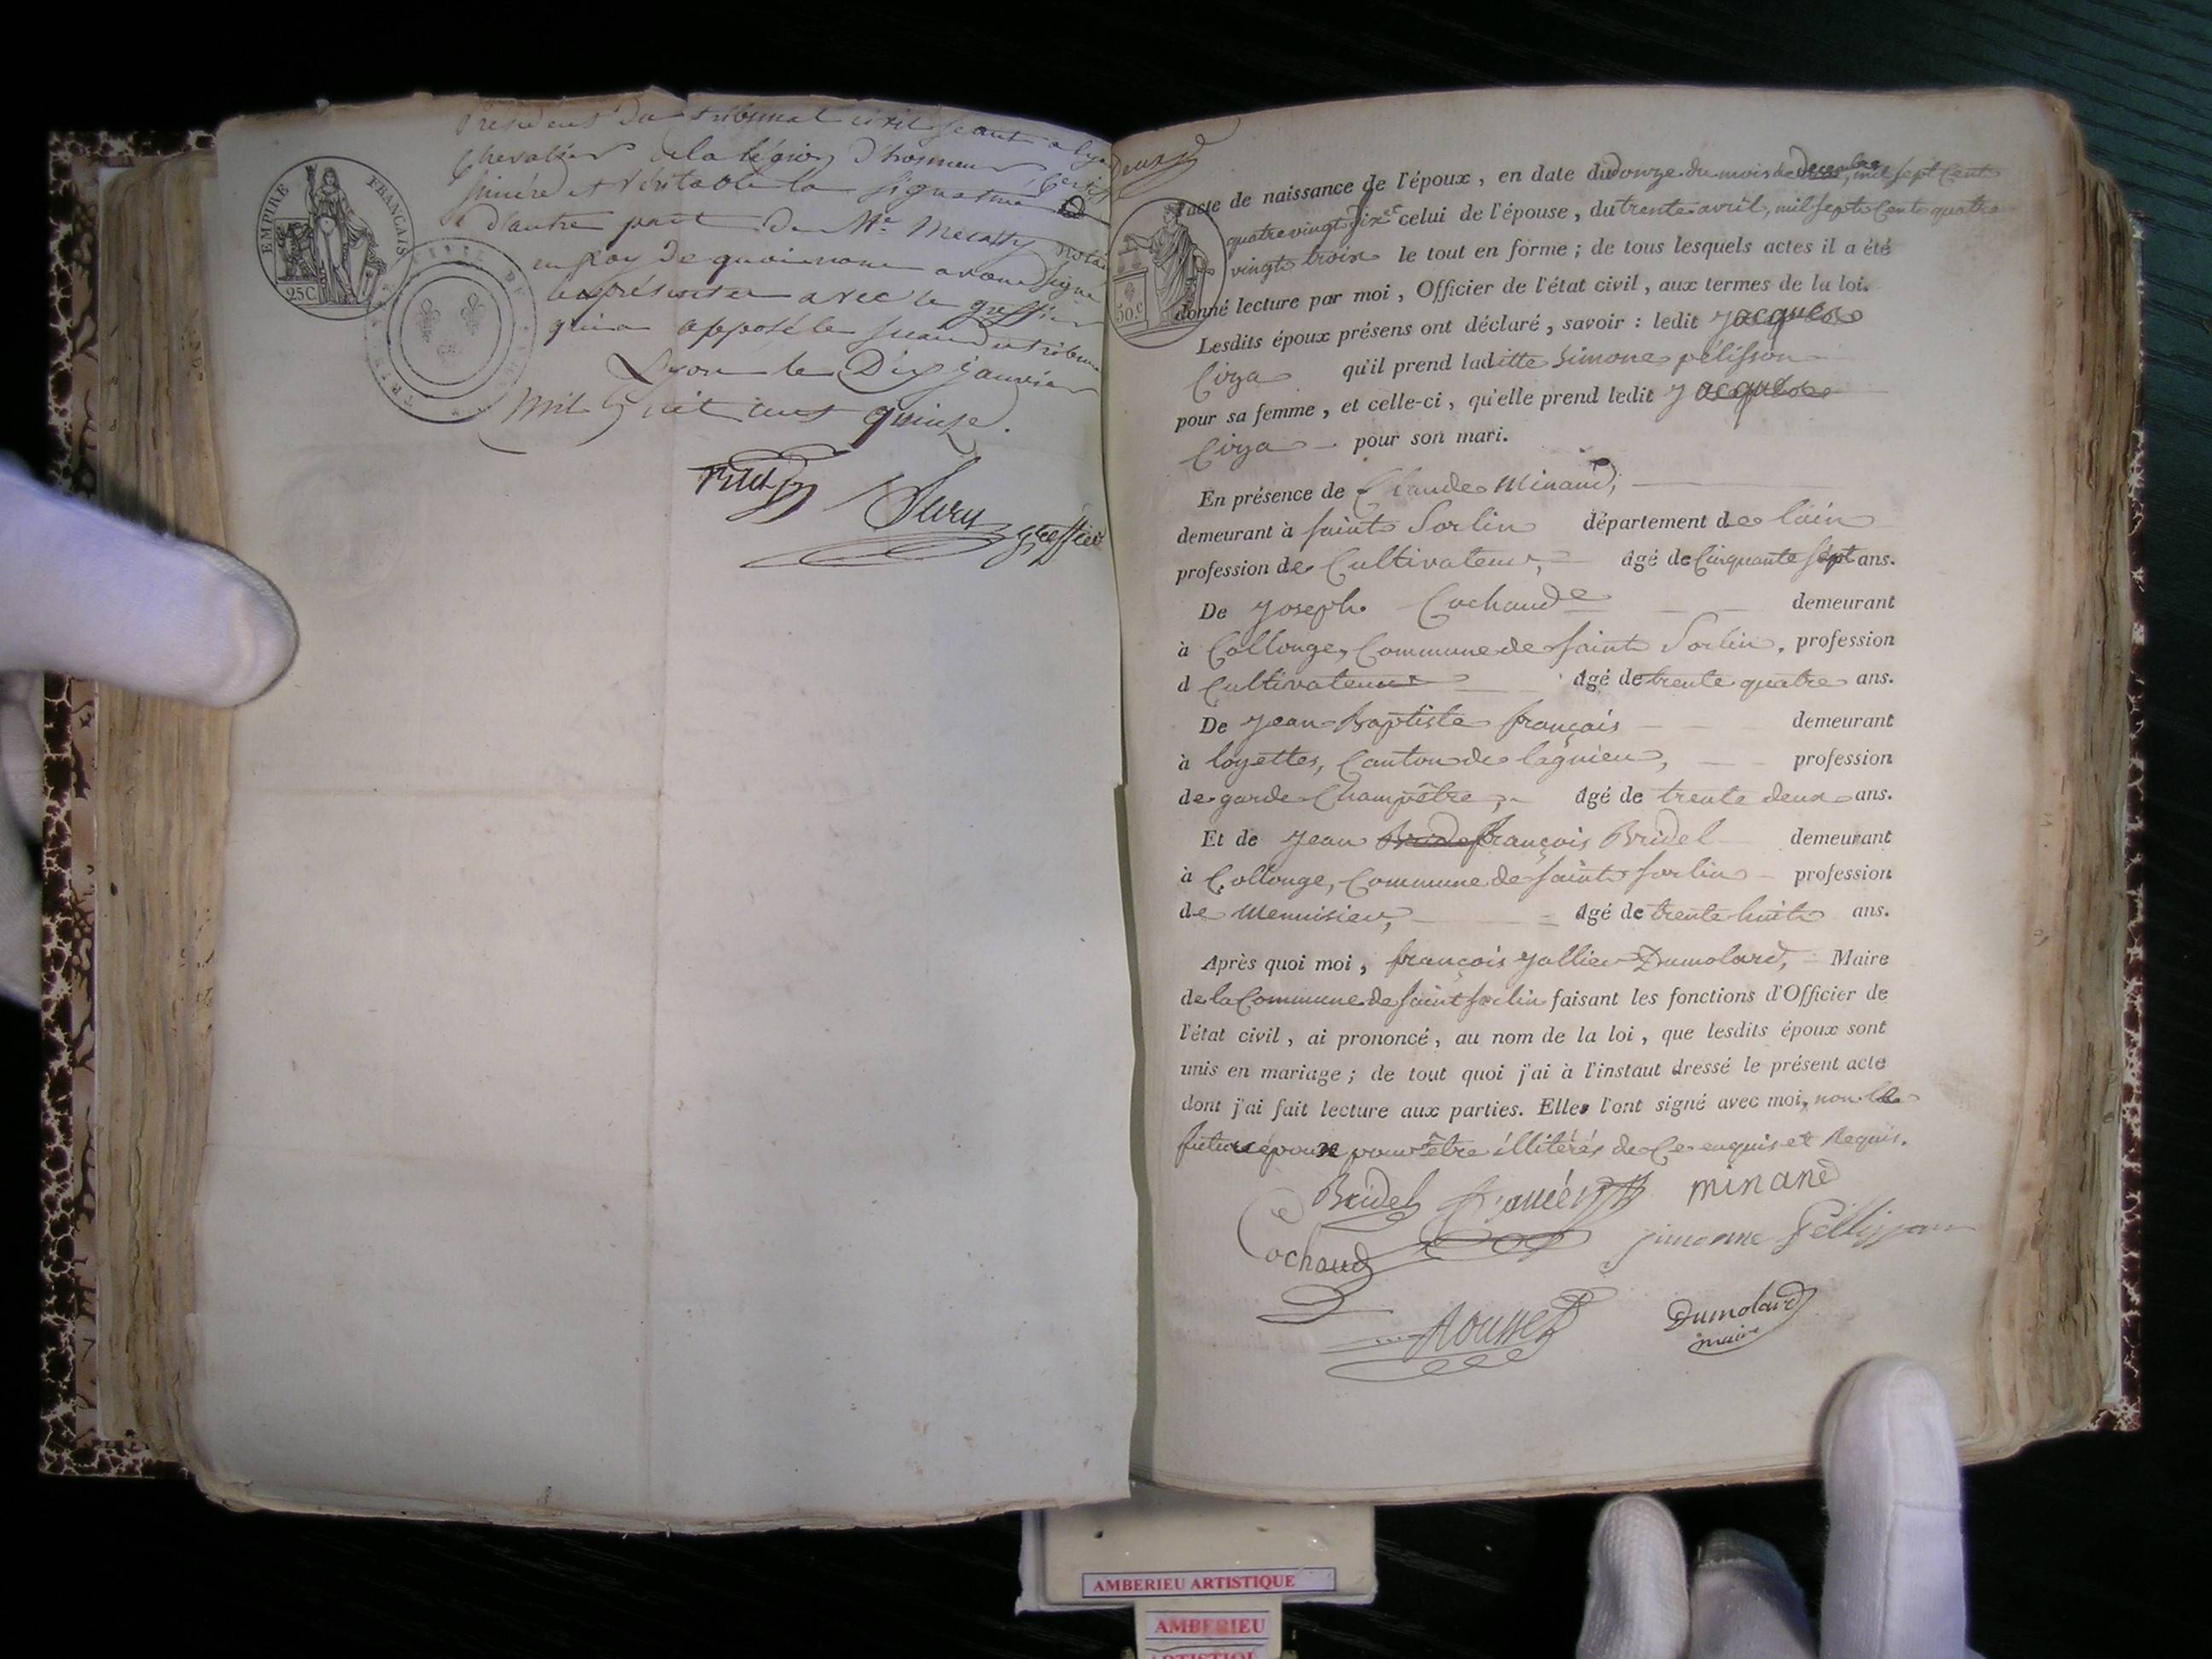 Président du tribunal civil séant a Lyon
Chevalier de la légion d'honneur, Certifie
sincère et véritable la signature
d'autre part de Me Mecatty notaire
en foy de quoi nous avons signé
les présentes avec le greffier
qui a apposé le sceau du tribunal
Lyon le Dix janvier
Mil huit cent quinze.
greffier
EMPIRE FRANÇAIS
25C
30.c
l'acte de naissance de l'époux, en date du douze du mois de Decembre, mil sept Cent
quatre vingt dix et celui de l'épouse, du trente avril, mil sept Cent quatre
vingt trois le tout en forme ; de tous lesquels actes il a été
donné lecture par moi, Officier de l'état civil, aux termes de la loi.
Lesdits époux présens ont déclaré, savoir : ledit Jacques
Ciza qu'il prend laditte Simone pélisson
pour sa femme, et celle-ci, qu'elle prend ledit Jacques
Ciza pour son mari.
En présence de Claude Minand,
demeurant à saint Sorlin département de lain
profession de Cultivateur, âgé de Cinquante sept ans.
De Joseph Cochaud demeurant
à Collonge, Commune de saint Sorlin, profession
d Cultivateur âgé de trente quatre ans.
De Jean Baptiste françois demeurant
à loyettes, Canton de lagnieu, profession
de garde Champêtre, âgé de trente deux ans.
Et de Jean Bride françois Bridel demeurant
à Collonge, Commune de saint sorlin profession
de Menuisier, âgé de trente huit ans.
Après quoi moi, françois Jallier Dumolard, Maire
de la Commune de saint sorlin faisant les fonctions d'Officier de
l'état civil, ai prononcé, au nom de la loi, que lesdits époux sont
unis en mariage ; de tout quoi j'ai à l'instaut dressé le présent acte
dont j'ai fait lecture aux parties. Elles l'ont signé avec moi, non le
futur époux pour être illitérés de Ce enquis et Requis.
Bridel minand
Cochaud simonne Pellisson
Rousset Dumolard
maire
AMBERIEU ARTISTIQUE
AMBERIEU
ARTISTIQUE